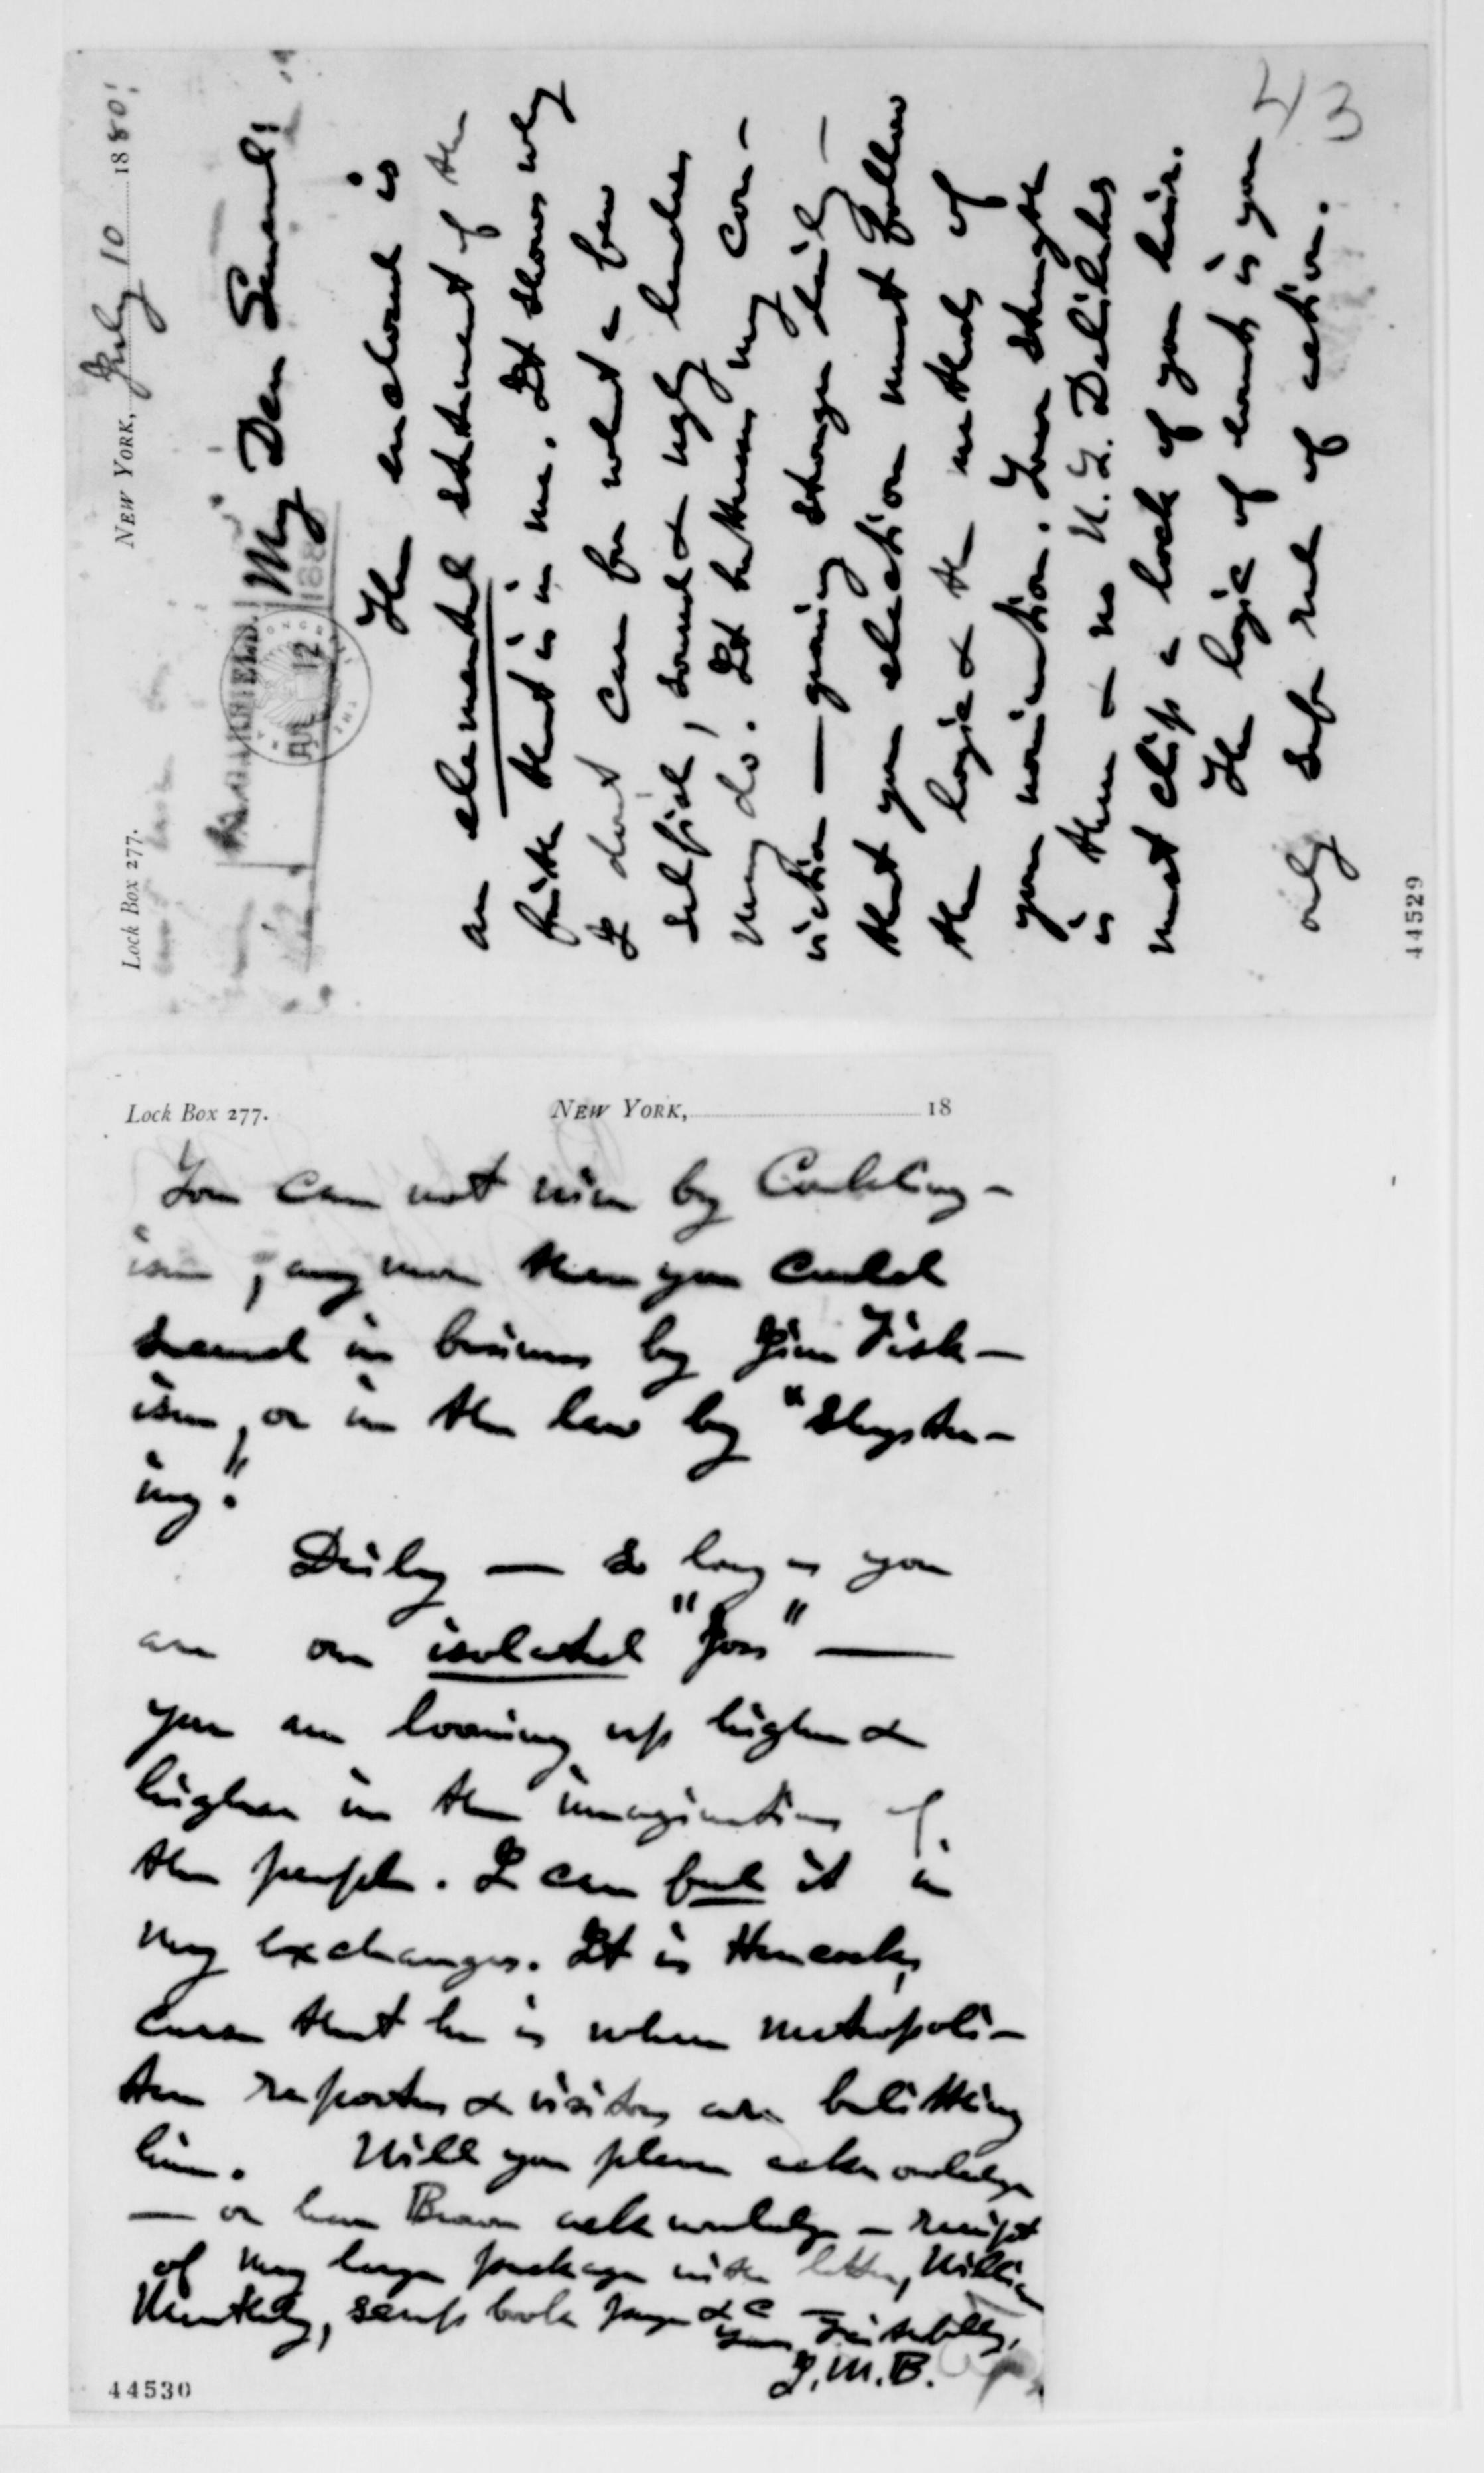 Lock Box 277. NEW YORK, July 10 1880!
GARFIELD.
JUL 12 188
My Dear General:
The enclosed is
an elemental statement of the
faith that is in me. It shows why
I dont care for what a few
selfish, soured & ugly leaders
may do. It buttresses my con-
viction — growing stronger daily —
that your election must follow
the logic & the methods of
your nomination. Your strength
is there & no N.Y. Delilahs
must clip a lock of your hair.
The logic of events is your
only safe rule of action.
43
44529
Lock Box 277. NEW YORK, 18
You can not win by Conkling-
ism, any more than you could
succeed in business by Jim Fisk-
ism, or in the law by "Shyster-
ing."
Daily — so long as you
are an isolated "Joss" —
you are looming up higher &
higher in the imagination of
the people. I can feel it in
my exchanges. It is Hancock's
curse that he is where metropoli-
tan reporters & visitors are belittling
him. Will you please acknowledge
— or have Brown acknowledge — receipt
of my large package with letter, Williams
Monthly, scrap book pages &c —
Yours Faithfully,
J.M.B.
44530